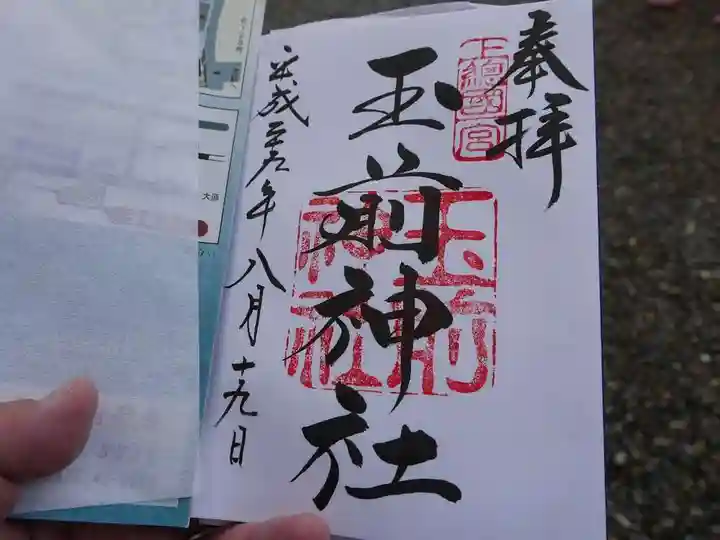 奉拝
上總國一宮
玉前神社
玉前神社
平成二十九年八月十九日
大原